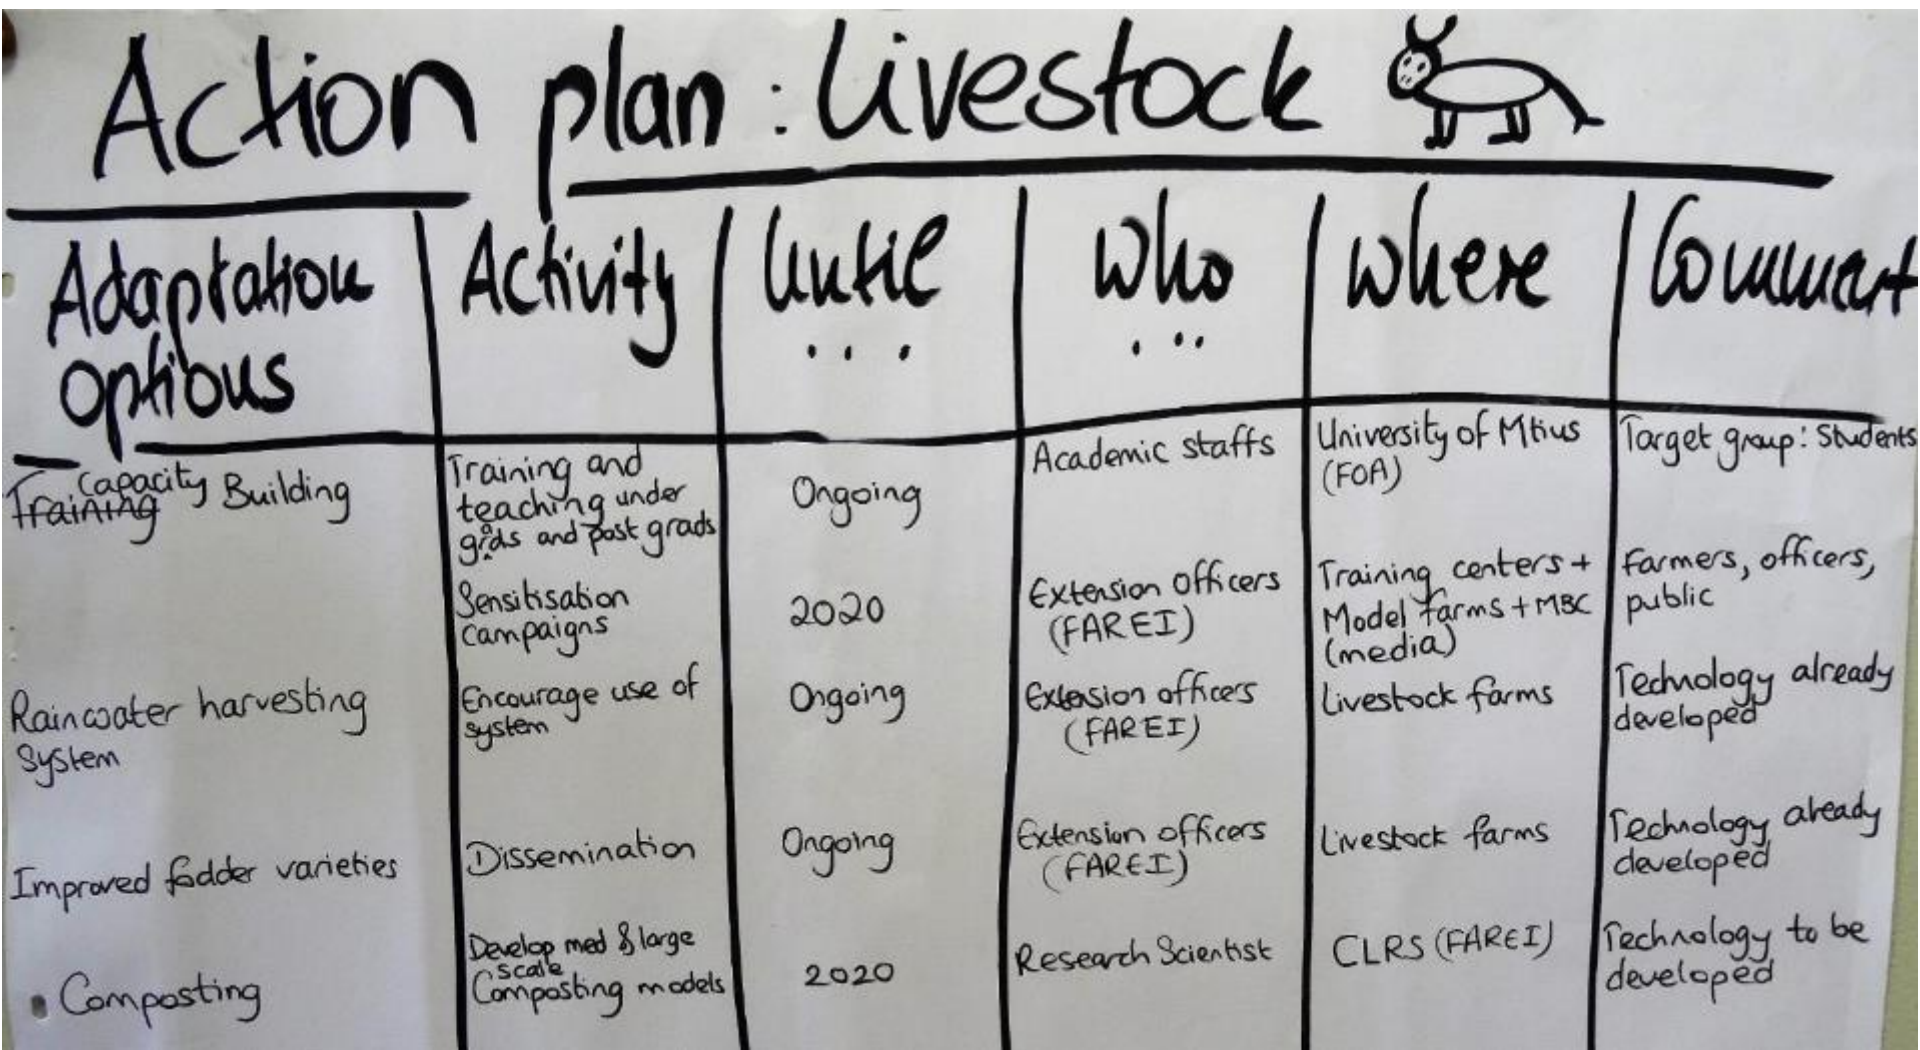 Action plan : Livestock
Adaptation options
Activity
Until ...
Who ...
Where
Comment
Capacity Building
Training and
teaching under
grds and post grads
Ongoing
Academic staffs
University of Mtius
(FOA)
Target group: Students
Sensitisation
Campaigns
2020
Extension Officers
(FAREI)
Training centers +
Model farms + MBC
(media)
Farmers, officers,
public
Rainwater harvesting
System
Encourage use of
system
Ongoing
Extension officers
(FAREI)
Livestock farms
Technology already
developed
Improved fodder varieties
Dissemination
Ongoing
Extension officers
(FAREI)
Livestock farms
Technology already
developed
• Composting
Develop med & large
scale
Composting models
2020
Research Scientist
CLRS (FAREI)
Technology to be
developed